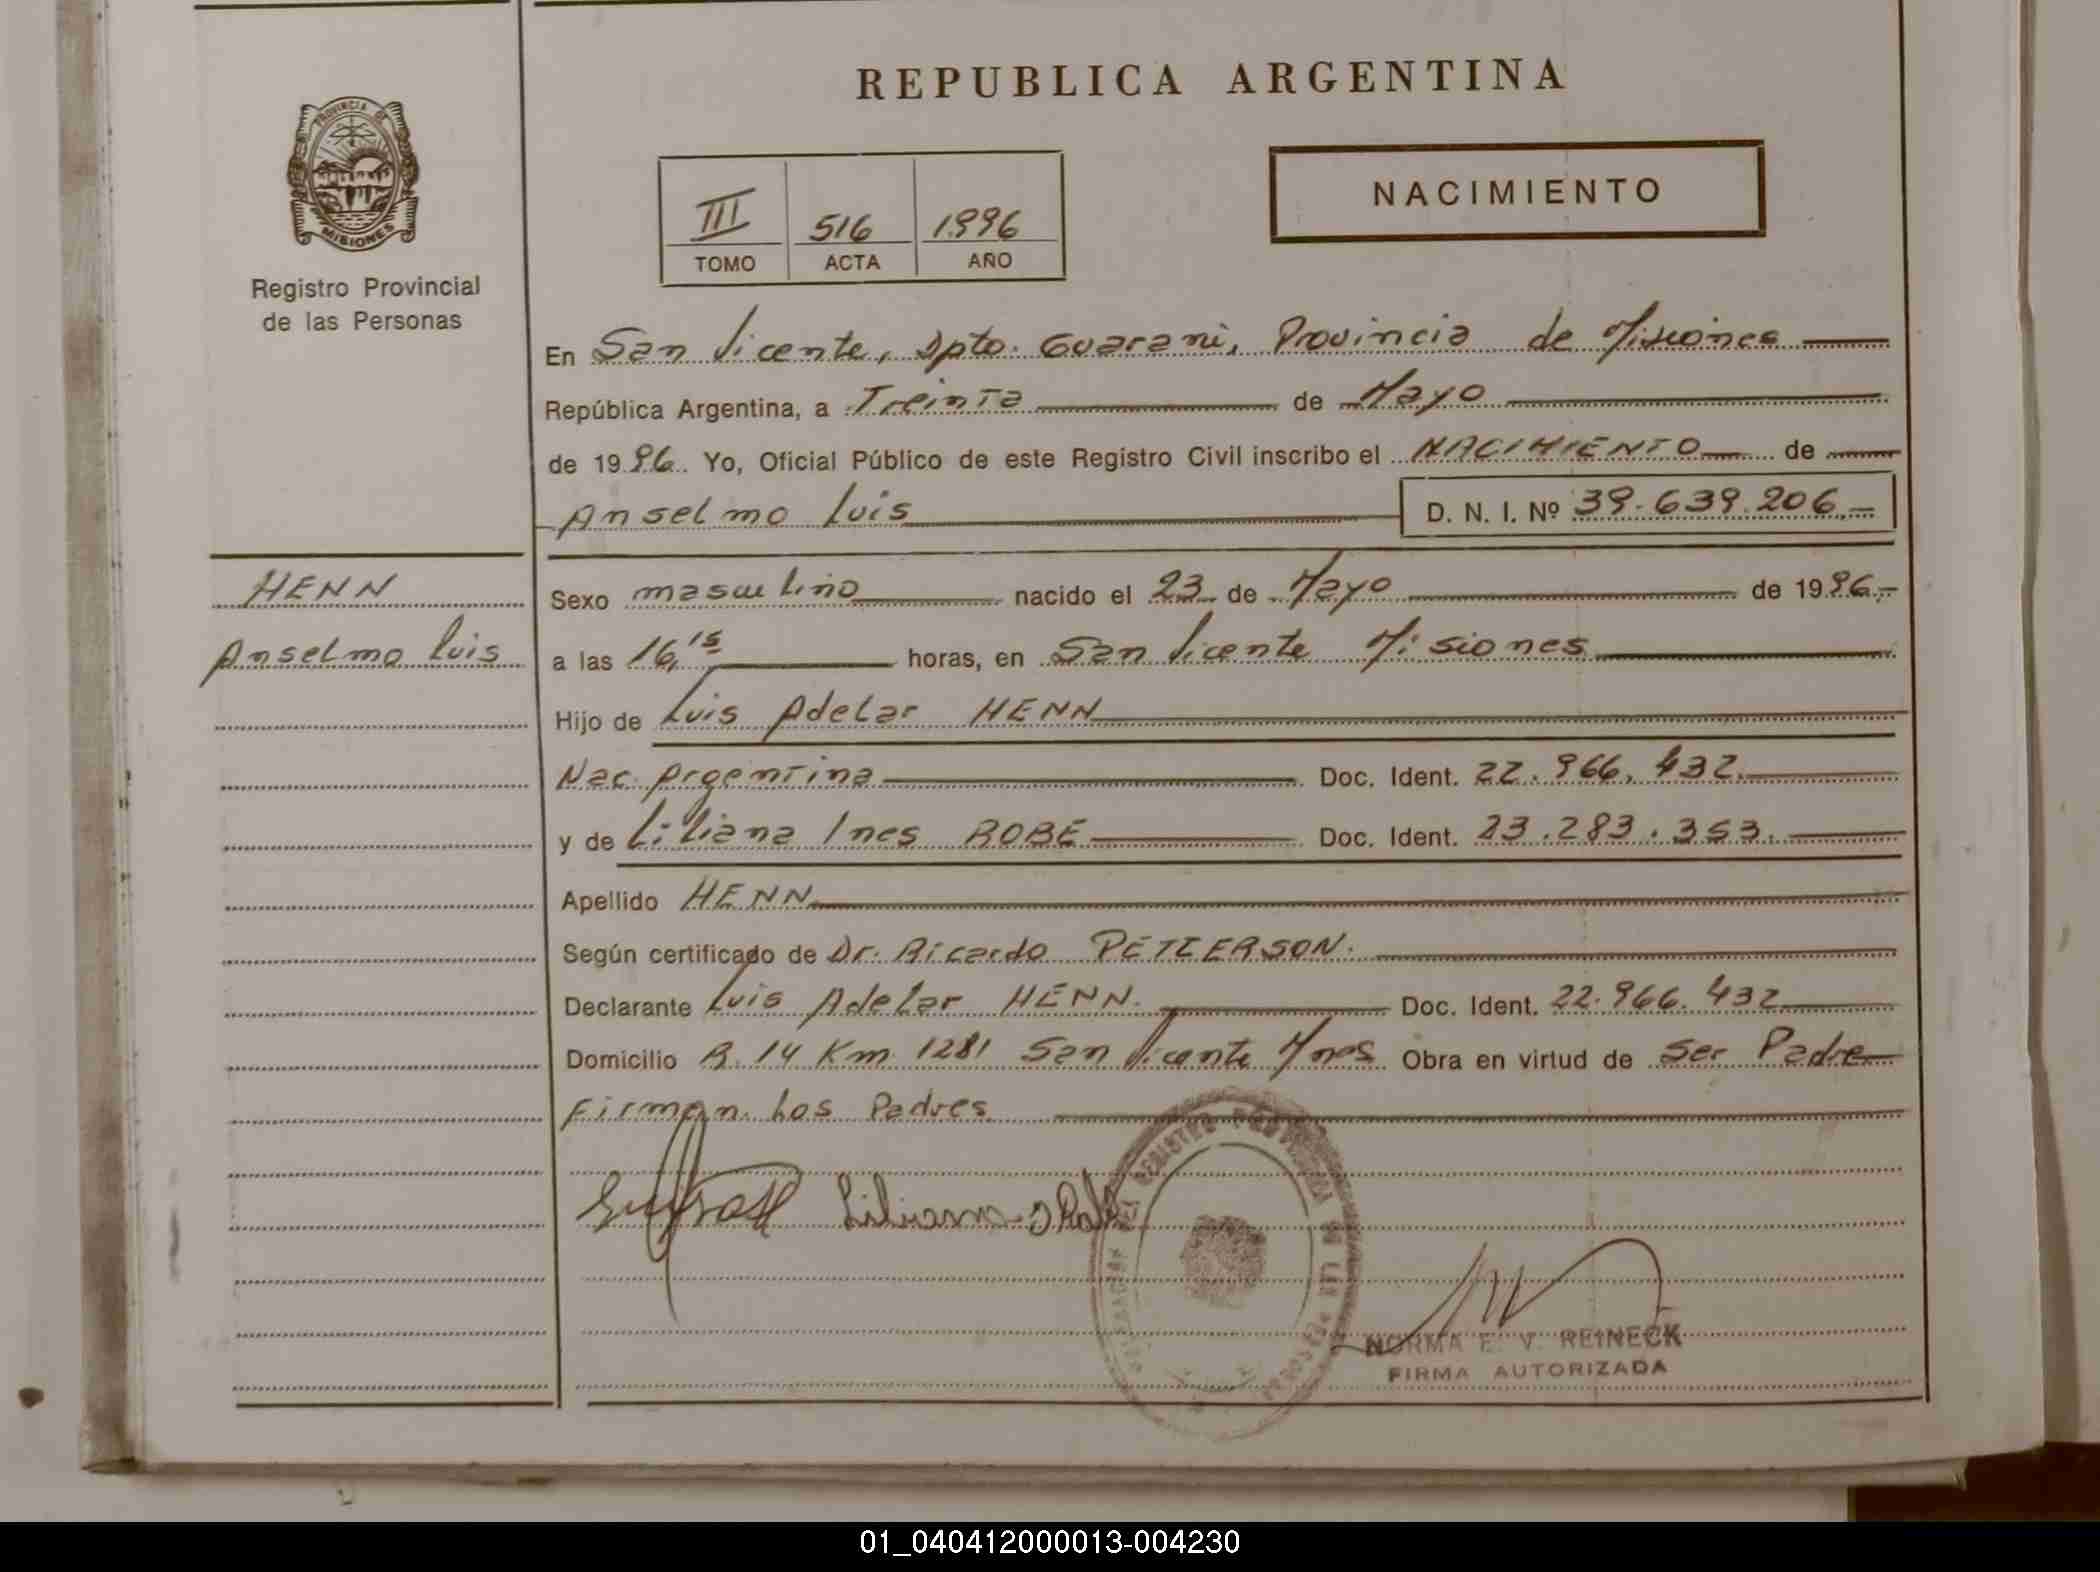 REPUBLICA ARGENTINA
PROVINCIA DE
MISIONES
Registro Provincial
de las Personas
NACIMIENTO
III 516 1996
TOMO ACTA AÑO
En San Vicente, Dpto. Guarani, Provincia de Misiones
República Argentina, a Treinta de Mayo
de 1996. Yo, Oficial Público de este Registro Civil inscribo el NACIMIENTO de
Anselmo Luis D. N. I. Nº 39.639.206.-
HENN
Anselmo Luis
Sexo masculino nacido el 23 de Mayo de 1996.-
a las 16,15 horas, en San Vicente Misiones
Hijo de Luis Adelar HENN
Nac. Argentina Doc. Ident. 22.966.432.
y de Liliana Ines ROBE Doc. Ident. 23.283.353.
Apellido HENN
Según certificado de Dr. Ricardo PETTERSON.
Declarante Luis Adelar HENN. Doc. Ident. 22.966.432
Domicilio R. 14 Km 1281 San Vicente Mnes Obra en virtud de Ser Padre
Firman Los Padres
Liliana
REGISTRO PROVINCIAL DE LAS PERSONAS
NORMA E. V. REINECK
FIRMA AUTORIZADA
01_040412000013-004230